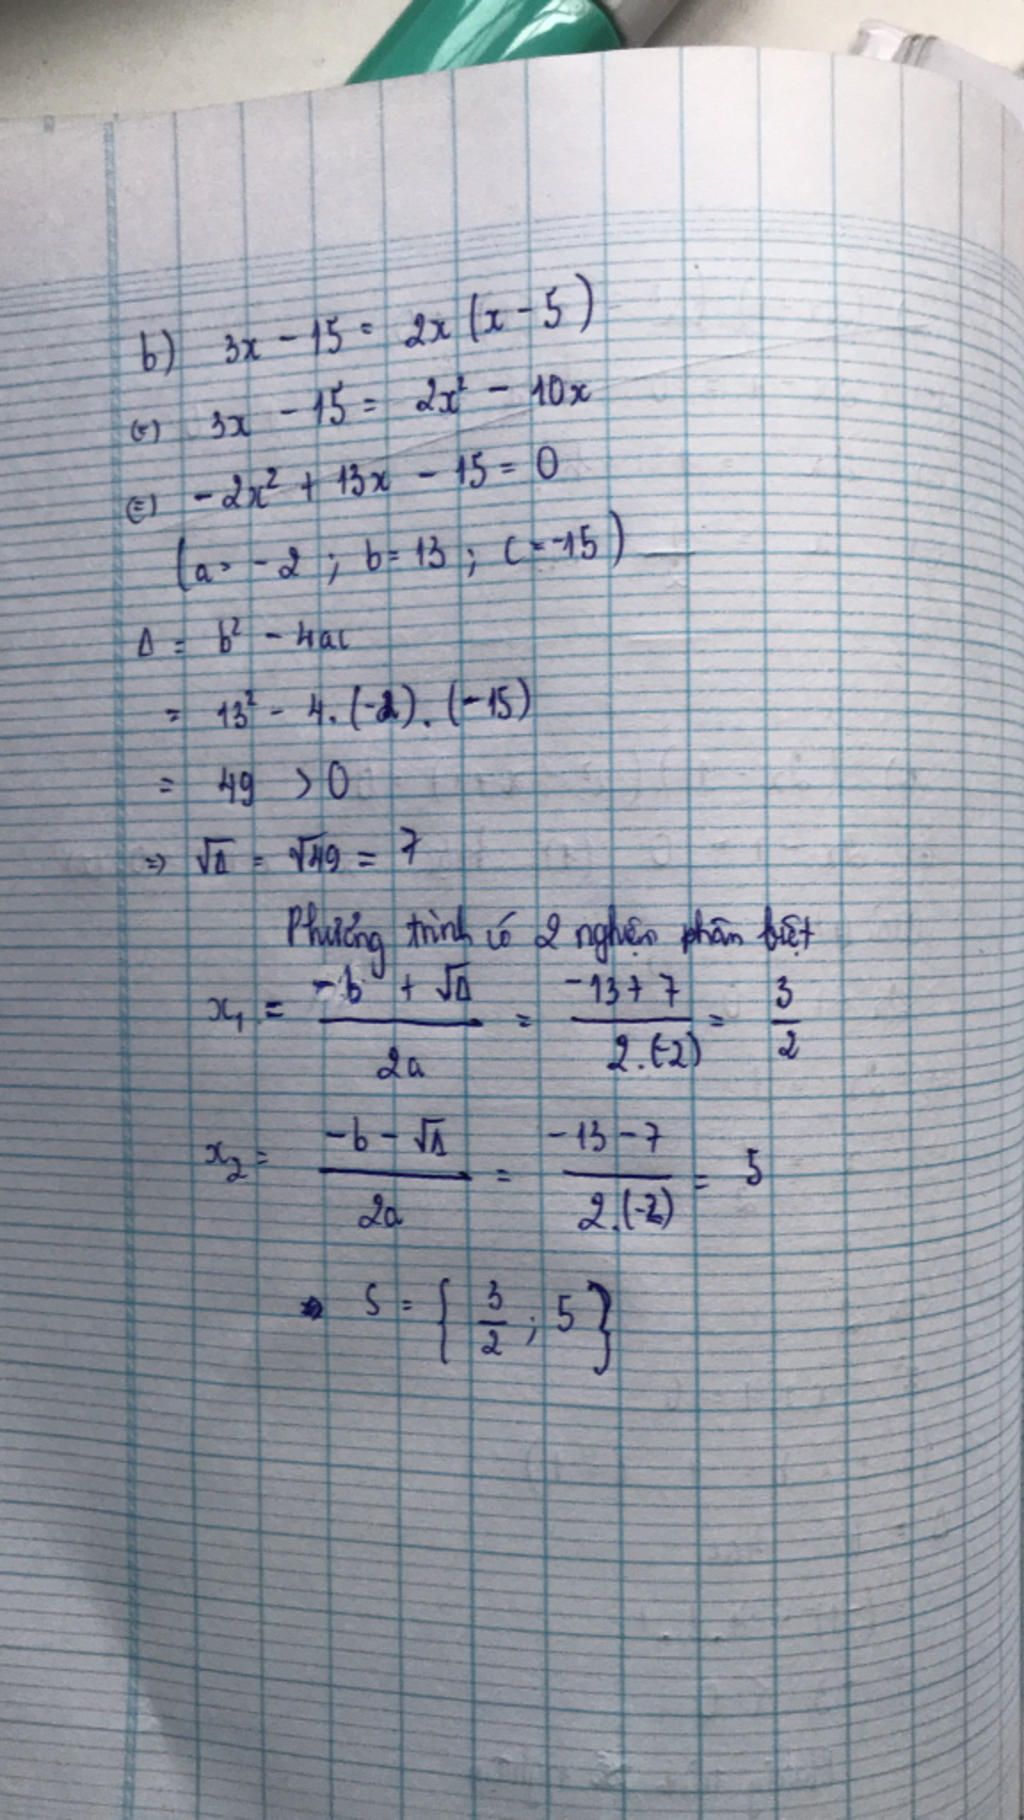 b) 3x - 15 = 2x (x - 5)
(=) 3x - 15 = 2x² - 10x
(=) -2x² + 13x - 15 = 0
(a = -2 ; b = 13 ; c = -15)
Δ = b² - 4ac
= 13² - 4. (-2). (-15)
= 49 > 0
=> √Δ = √49 = 7
Phương trình có 2 nghiệm phân biệt
x₁ = (-b + √Δ)/2a = (-13 + 7)/2.(-2) = 3/2
x₂ = (-b - √Δ)/2a = (-13 - 7)/2.(-2) = 5
S = { 3/2 ; 5 }